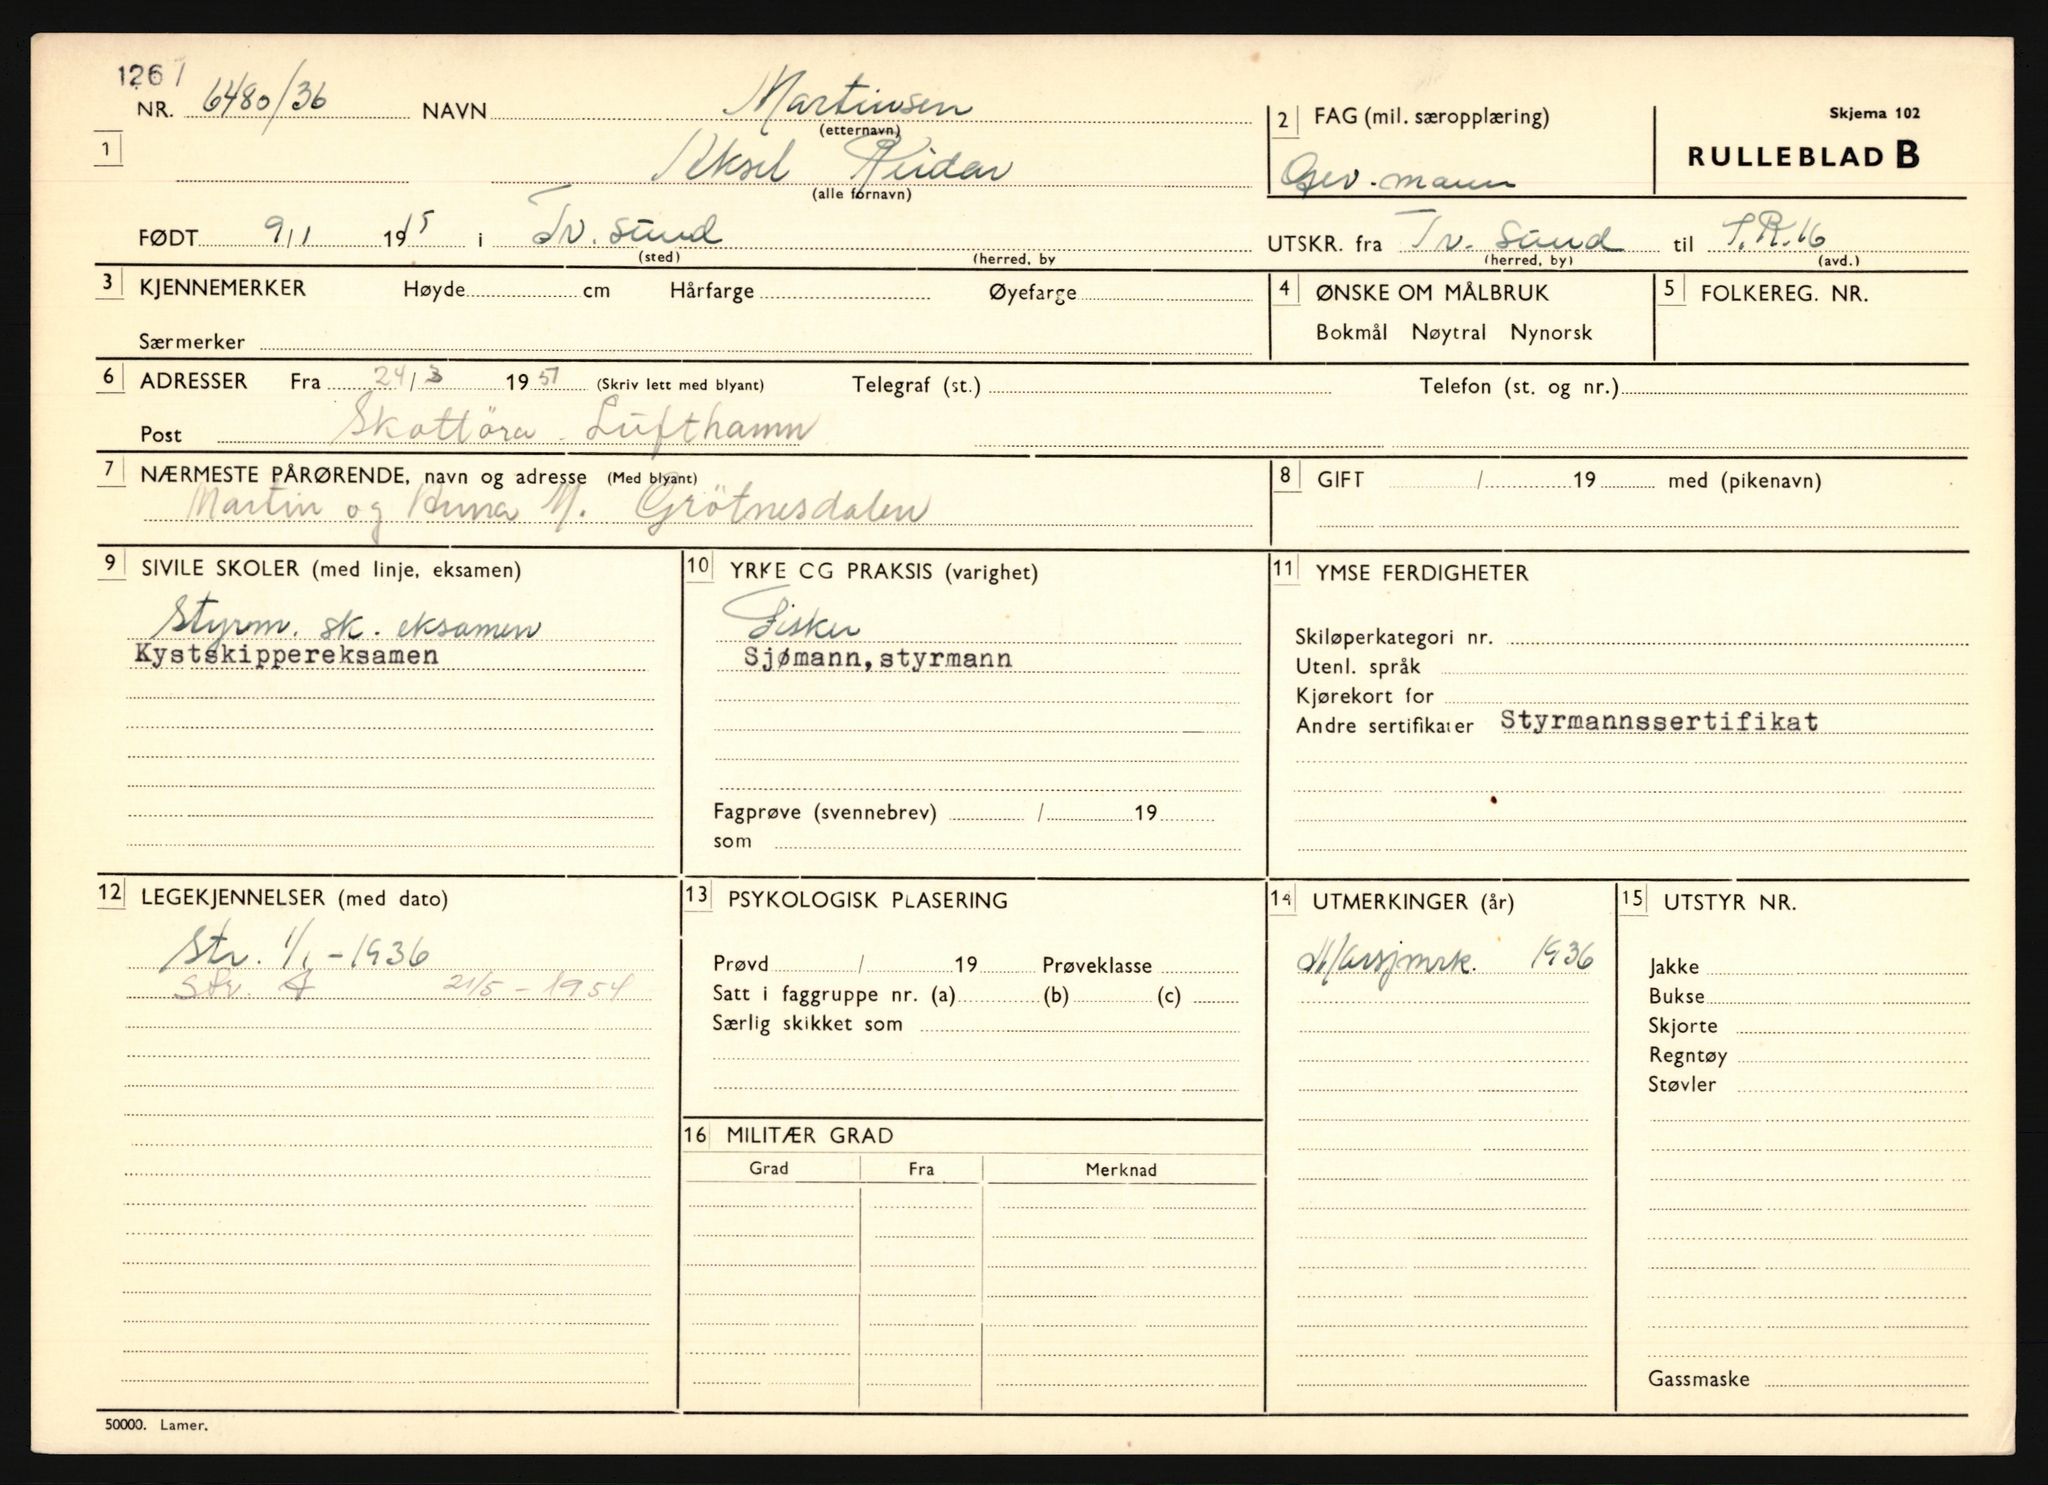 1267
NR. 6480/36 NAVN Martinsen
(etternavn)
1 Aksel Reidar
(alle fornavn)
2 FAG (mil. særopplæring)
Gev. mann
Skjema 102
RULLEBLAD B
FØDT 9/1 1915 i Tv. sund
(sted) (herred, by
UTSKR. fra Tv. sund til I.R.16
(herred, by) (avd.)
3 KJENNEMERKER Høyde cm Hårfarge Øyefarge
Særmerker
4 ØNSKE OM MÅLBRUK
Bokmål Nøytral Nynorsk
5 FOLKEREG. NR.
6 ADRESSER Fra 24/3 1951 (Skriv lett med blyant) Telegraf (st.) Telefon (st. og nr.)
Post Skattöra Lufthamn
7 NÆRMESTE PÅRØRENDE, navn og adresse (Med blyant)
Martin og Anna M. Grötnesdalen
8 GIFT / 19 med (pikenavn)
9 SIVILE SKOLER (med linje, eksamen)
Styrm. sk. eksamen
Kystskippereksamen
10 YRKE CG PRAKSIS (varighet)
Fisker
Sjømann,styrmann
Fagprøve (svennebrev) / 19
som
11 YMSE FERDIGHETER
Skiløperkategori nr.
Utenl. språk
Kjørekort for
Andre sertifikater Styrmannssertifikat
12 LEGEKJENNELSER (med dato)
Str. 1/1 - 1936
Str. A 21/5 - 1954
13 PSYKOLOGISK PLASERING
Prøvd / 19 Prøveklasse
Satt i faggruppe nr. (a) (b) (c)
Særlig skikket som
14 UTMERKINGER (år)
Marsjmrk. 1936
15 UTSTYR NR.
Jakke
Bukse
Skjorte
Regntøy
Støvler
Gassmaske
16 MILITÆR GRAD
Grad Fra Merknad
50000. Lamer.